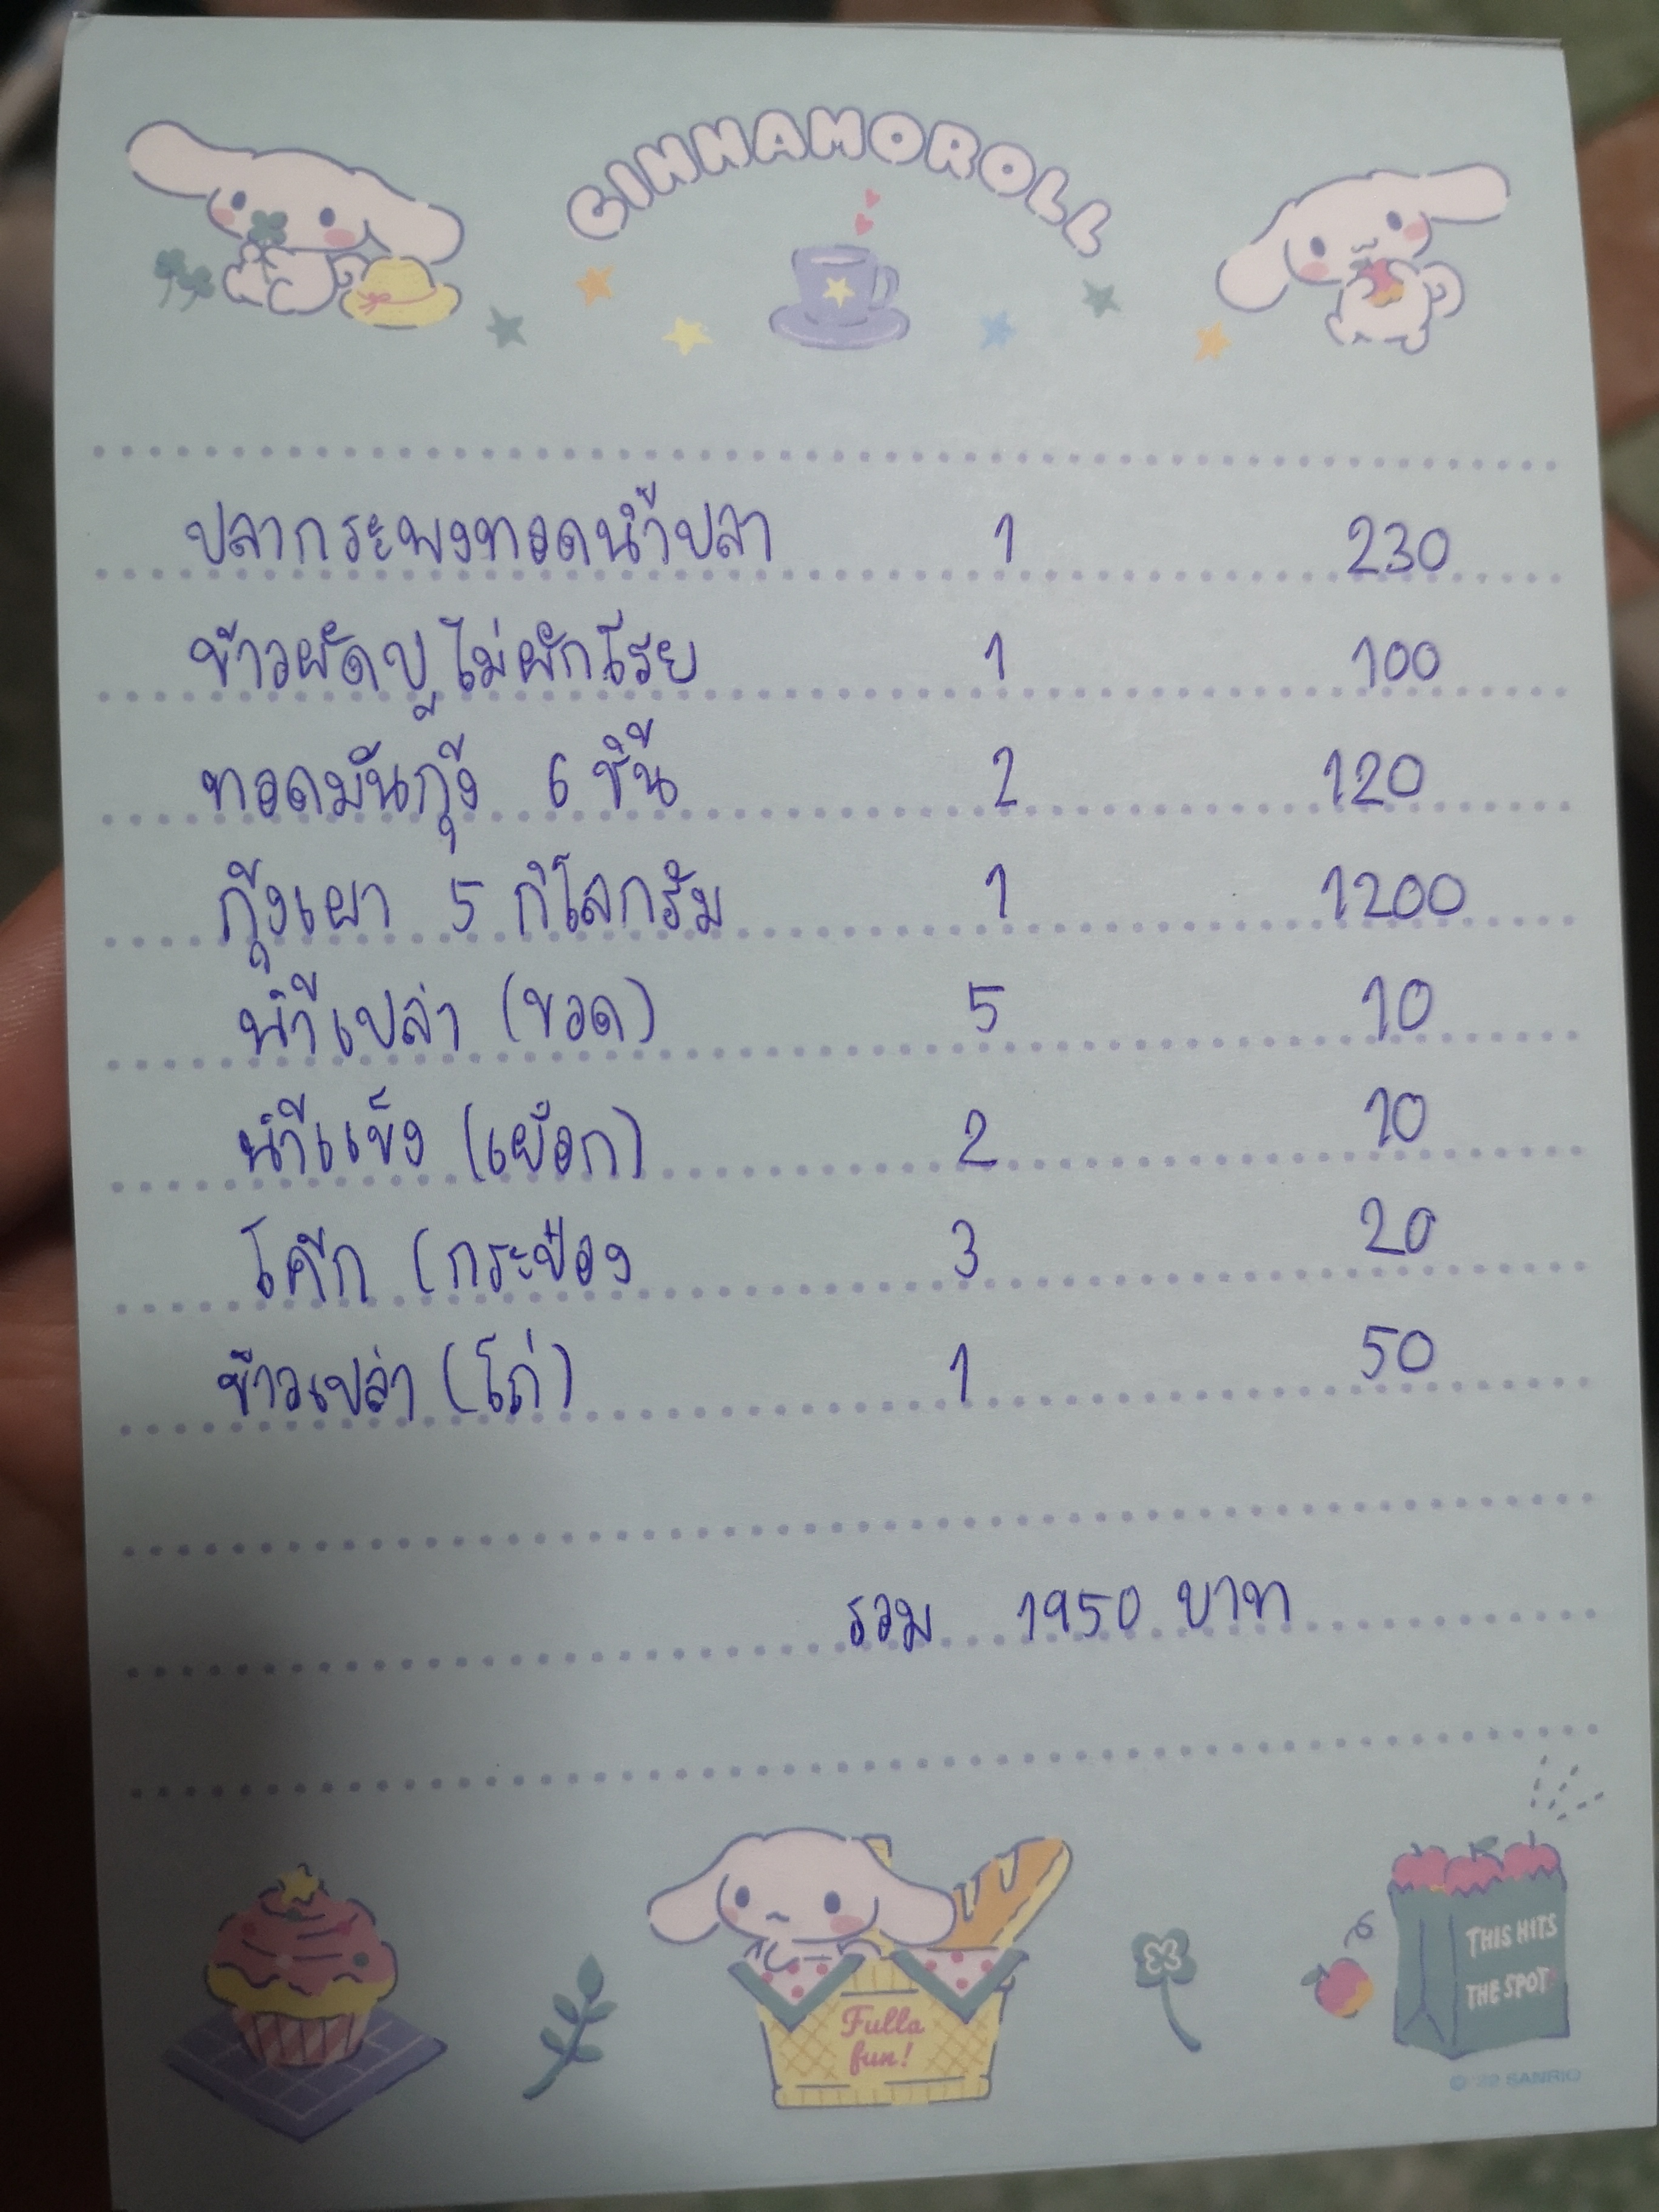 CINNAMOROLL
ปลากระพงทอดน้ำปลา 1 230
ข้าวผัดปู ไม่ผักโรย 1 100
ทอดมันกุ้ง 6 ชิ้น 2 120
กุ้งเผา 5 กิโลกรัม 1 1200
น้ำเปล่า (ขวด) 5 10
น้ำแข็ง (เหยือก) 2 10
โค๊ก (กระป๋อง 3 20
ข้าวเปล่า (โถ่) 1 50
รวม 1950 บาท
Fulla
fun!
THIS HITS
THE SPOT
© '22 SANRIO